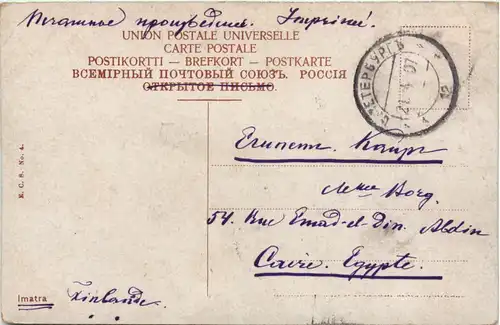 Печатное произведение. Imprimé.
UNION POSTALE UNIVERSELLE
CARTE POSTALE
POSTIKORTTI — BREFKORT — POSTKARTE
ВСЕМІРНЫЙ ПОЧТОВЫЙ СОЮЗЪ. РОССІЯ
ОТКРЫТОЕ ПИСЬМО.
С.ПЕТЕРБУРГЪ
21 4 07
Египетъ Каиръ
Mme Borg.
54. Rue Emad-el-Din. Abdin
Caire. Egypte.
E. C. S. No. 4.
Imatra Finlande.